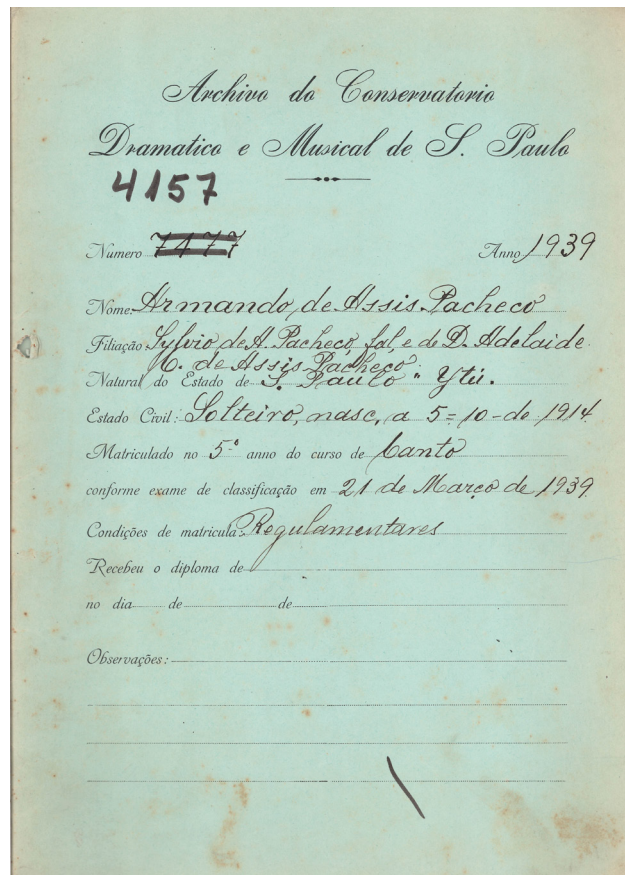 Archivo do Conservatorio
Dramatico e Musical de S. Paulo
4157
Numero 7477 Anno 1939
Nome: Armando de Assis Pacheco
Filiação Sylvio de A. Pacheco, fal, e de D. Adelaide
C. de Assis Pacheco.
Natural do Estado de S. Paulo " Ytú.
Estado Civil: Solteiro, nasc, a 5=10-de 1914
Matriculado no 5º anno do curso de Canto
conforme exame de classificação em 21 de Março de 1939
Condições de matricula: Regulamentares
Recebeu o diploma de
no dia de de
Observações: